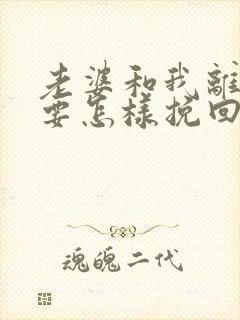 老婆和我離
要怎樣挽回
魂魄二代